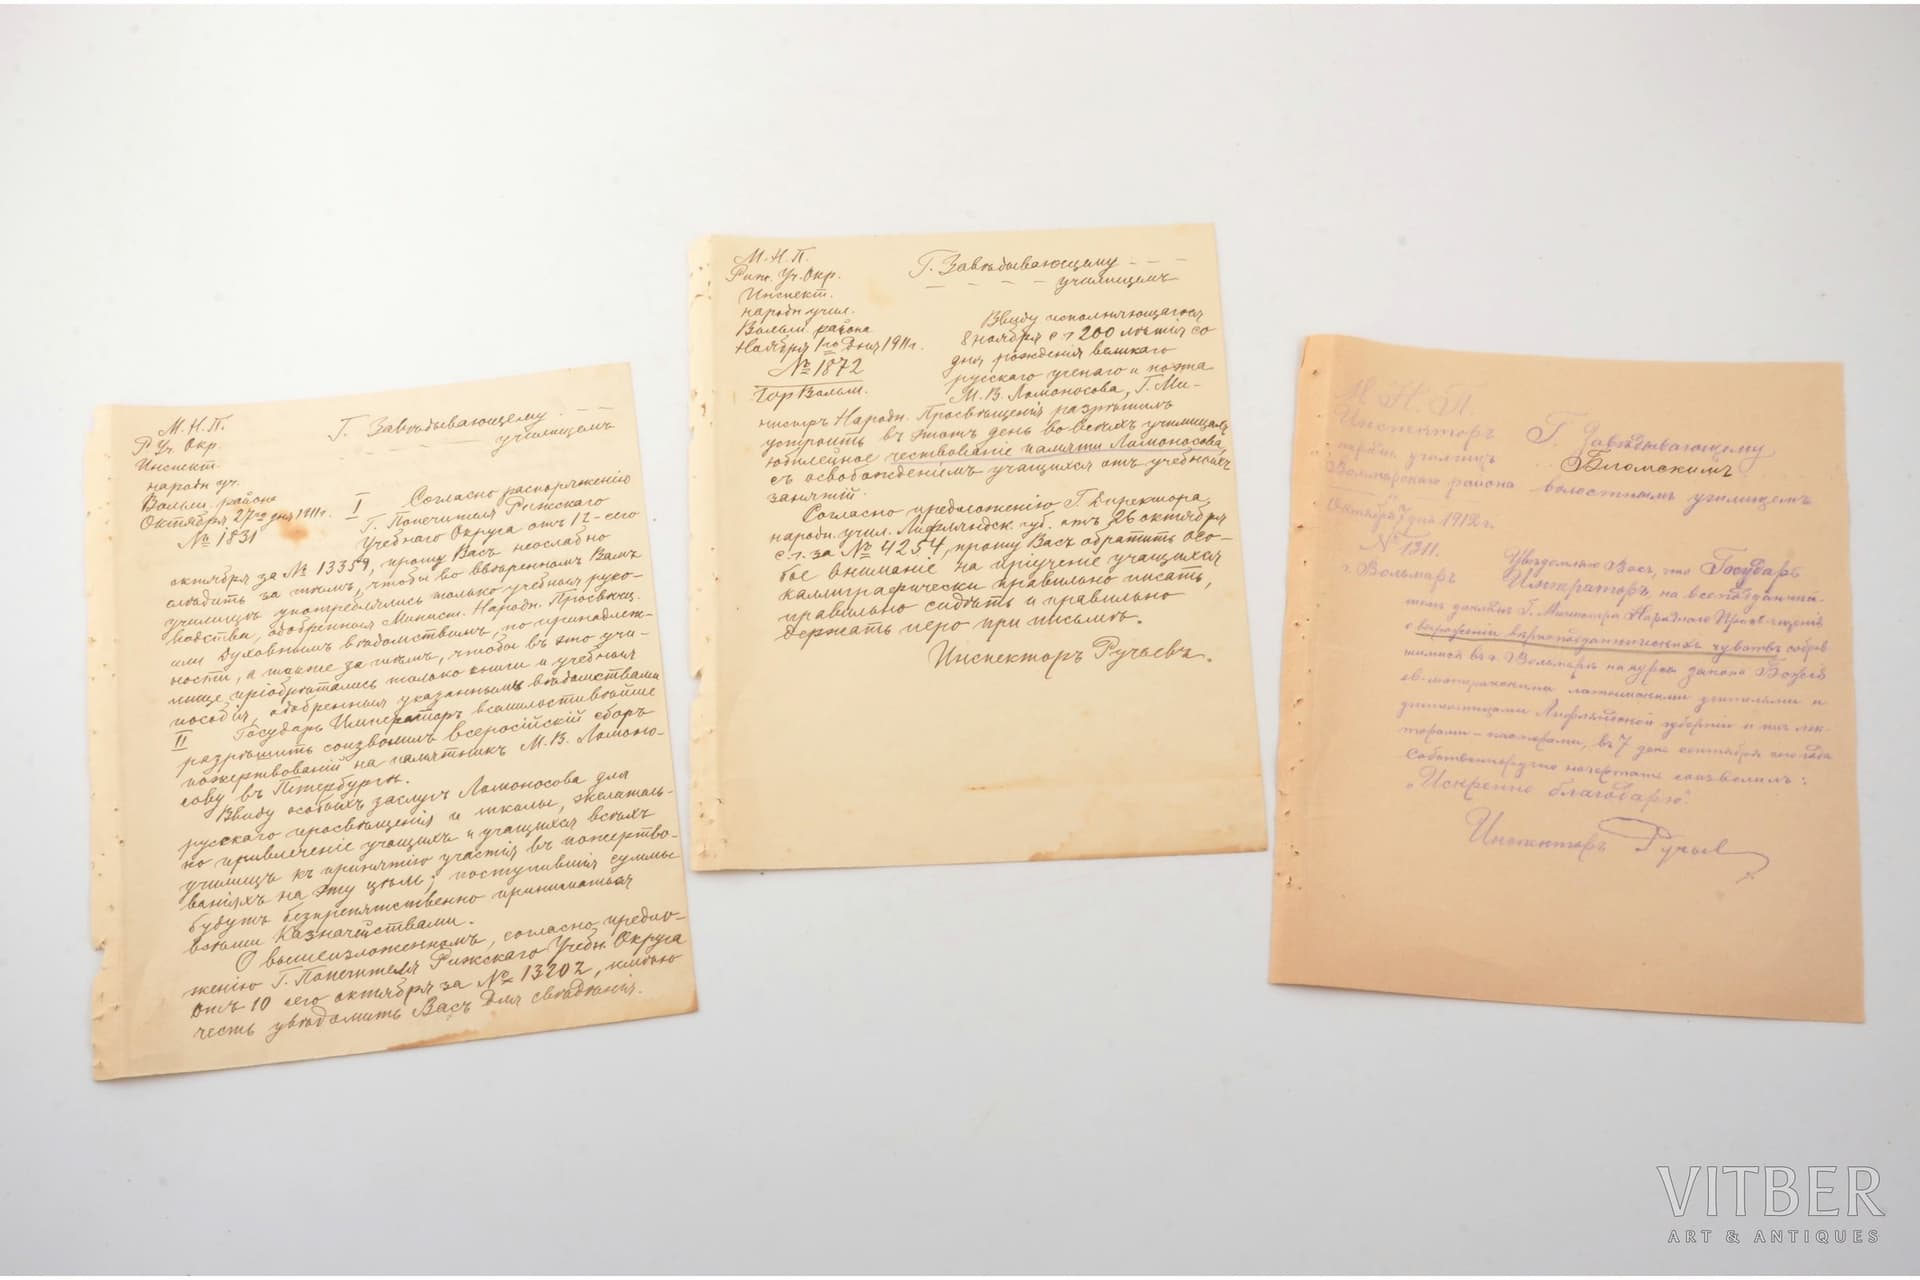 М. Н. П.
Р. Уч. Окр.
Инспект.
народн. уч.
Вольм. района
Октября 27го дня 1911 г.
№ 1831
Г. Завѣдывающему
училищемъ
I Согласно распоряженію
Г. Попечителя Рижскаго
Учебнаго Округа отъ 12-сего
октября за № 13359, прошу Васъ неослабно
слѣдить за тѣмъ, чтобы во ввѣренномъ Вамъ
училищѣ употреблялись только учебныя руко-
водства, одобренныя Минист. Народн. Просвѣщ.
или Духовнымъ вѣдомствомъ, по принадлеж-
ности, а также за тѣмъ, чтобы въ это учи-
лище пріобрѣтались только книги и учебныя
пособія, одобренныя указанными вѣдомствами
II Государь Императоръ всемилостивѣйше
разрѣшить соизволилъ всеросійскій сборъ
пожертвованій на памятникъ М. В. Ломоно-
сову въ Петербургѣ.
Ввиду особыхъ заслугъ Ломоносова для
русскаго просвѣщенія и школы, желатель-
но привлеченіе учащихъ и учащихся всѣхъ
училищъ къ принятію участія въ пожертво-
ваніяхъ на эту цѣль; поступившія суммы
будутъ безпрепятственно приниматься
всѣми Казначействами.
О вышеизложенномъ, согласно предло-
женію Г. Попечителя Рижскаго Учебн. Округа
отъ 10 сего октября за № 13202, имѣю
честь увѣдомить Васъ для свѣдѣнія.
М. Н. П.
Риж. Уч. Окр.
Инспект.
народн. учил.
Вольм. района
Ноября 1го дня 1911 г.
№ 1872
Гор Вольм.
Г. Завѣдывающему
училищемъ
Ввиду исполняющагося
8 ноября с. г. 200 лѣтія со
дня рожденія великаго
русскаго ученаго и поэта
М. В. Ломоносова, Г. Ми-
нистръ Народн. Просвѣщенія разрѣшилъ
устроить въ этотъ день во всѣхъ училищахъ
юбилейное чествованіе памяти Ломоносова,
съ освобожденіемъ учащихся отъ учебныхъ
занятій.
Согласно предложенію Г. Директора
народн. учил. Лифляндск. губ. отъ 26 октября
с. г. за № 4254, прошу Васъ обратить осо-
бое вниманіе на пріученіе учащихся
каллиграфически правильно писать,
правильно сидѣть и правильно
держать перо при письмѣ.
Инспекторъ Ручьевъ.
М. Н. П.
Инспекторъ
народн. училищъ
Вольмарскаго района
Октября 7 дня 1912 г.
№ 1311.
г. Вольмаръ
Г. Завѣдывающему
Бломскимъ
волостнымъ училищемъ
Увѣдомляю Васъ, что Государь
Императоръ, на всеподданнѣй-
шемъ докладѣ Г. Министра Народнаго Просвѣщенія
о выраженіи вѣрноподданническихъ чувствъ собрав-
шимися въ г. Вольмарѣ на курсы закона Божія
ев.-лютеранскими латышскими учителями и
учительницами Лифляндской губерніи и ихъ лек-
торами-пасторами, въ 7 день сентября сего года
Собственноручно начертать соизволилъ:
„Искренно благодарю“.
Инспекторъ Ручьев
VITBER
ART & ANTIQUES